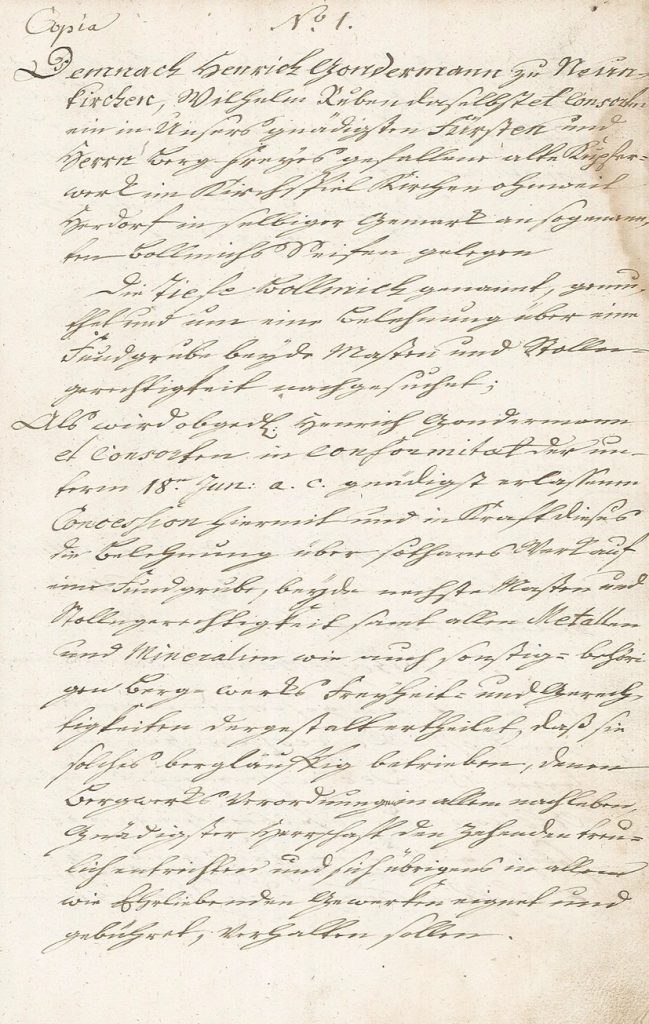 Copia
No 1.
Demnach Henrich Gondermann zu Neun-
kirchen, Wilhelm Ruben daselbst et Consorten
ein in Unsers gnädigsten Fürsten und
Herrn Berg freyes gefallene alte Kupfer-
werk im Kirchspiel Kirchen ohnweit
Herdorf in selbiger Gemark an sogenann-
ten Bollnichs Seifen gelegen
Die Tiefe Bollnich genannt, gemu-
thet und um eine Belehnung über eine
Fundgrube beyde Maßen und Stolln-
gerechtigkeit nachgesuchet;
Als wird obged. Henrich Gondermann
et Consorten in Conformitæt der un-
term 18ten Jun: a. c. gnädigst erlassenen
Concession hiermit und in Kraft dieses
die Belehnung über sothanes Werk auf
eine Fundgrube, beyde nechste Maßen und
Stollngerechtigkeit samt allen Metallen
und Mineralien wie auch sonstig= behöri-
gen Berg- werks Freyheit= und Gerech-
tigkeiten dergestalt ertheilet, daß sie
solches bergläuffig betreiben, denen
Bergwerks Verordnungen in allem nachleben,
Gnädigster Herrschaft den Zehenden treu-
lich entrichten und sich übrigens in allem
wie Ehrliebenden Gewerken eignet und
gebühret, verhalten sollen.